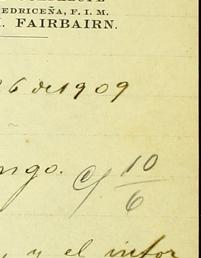 EDRICEÑA, F. I. M.
. FAIRBAIRN.
26 de 1909
ngo. C/ 10
6
y el infor